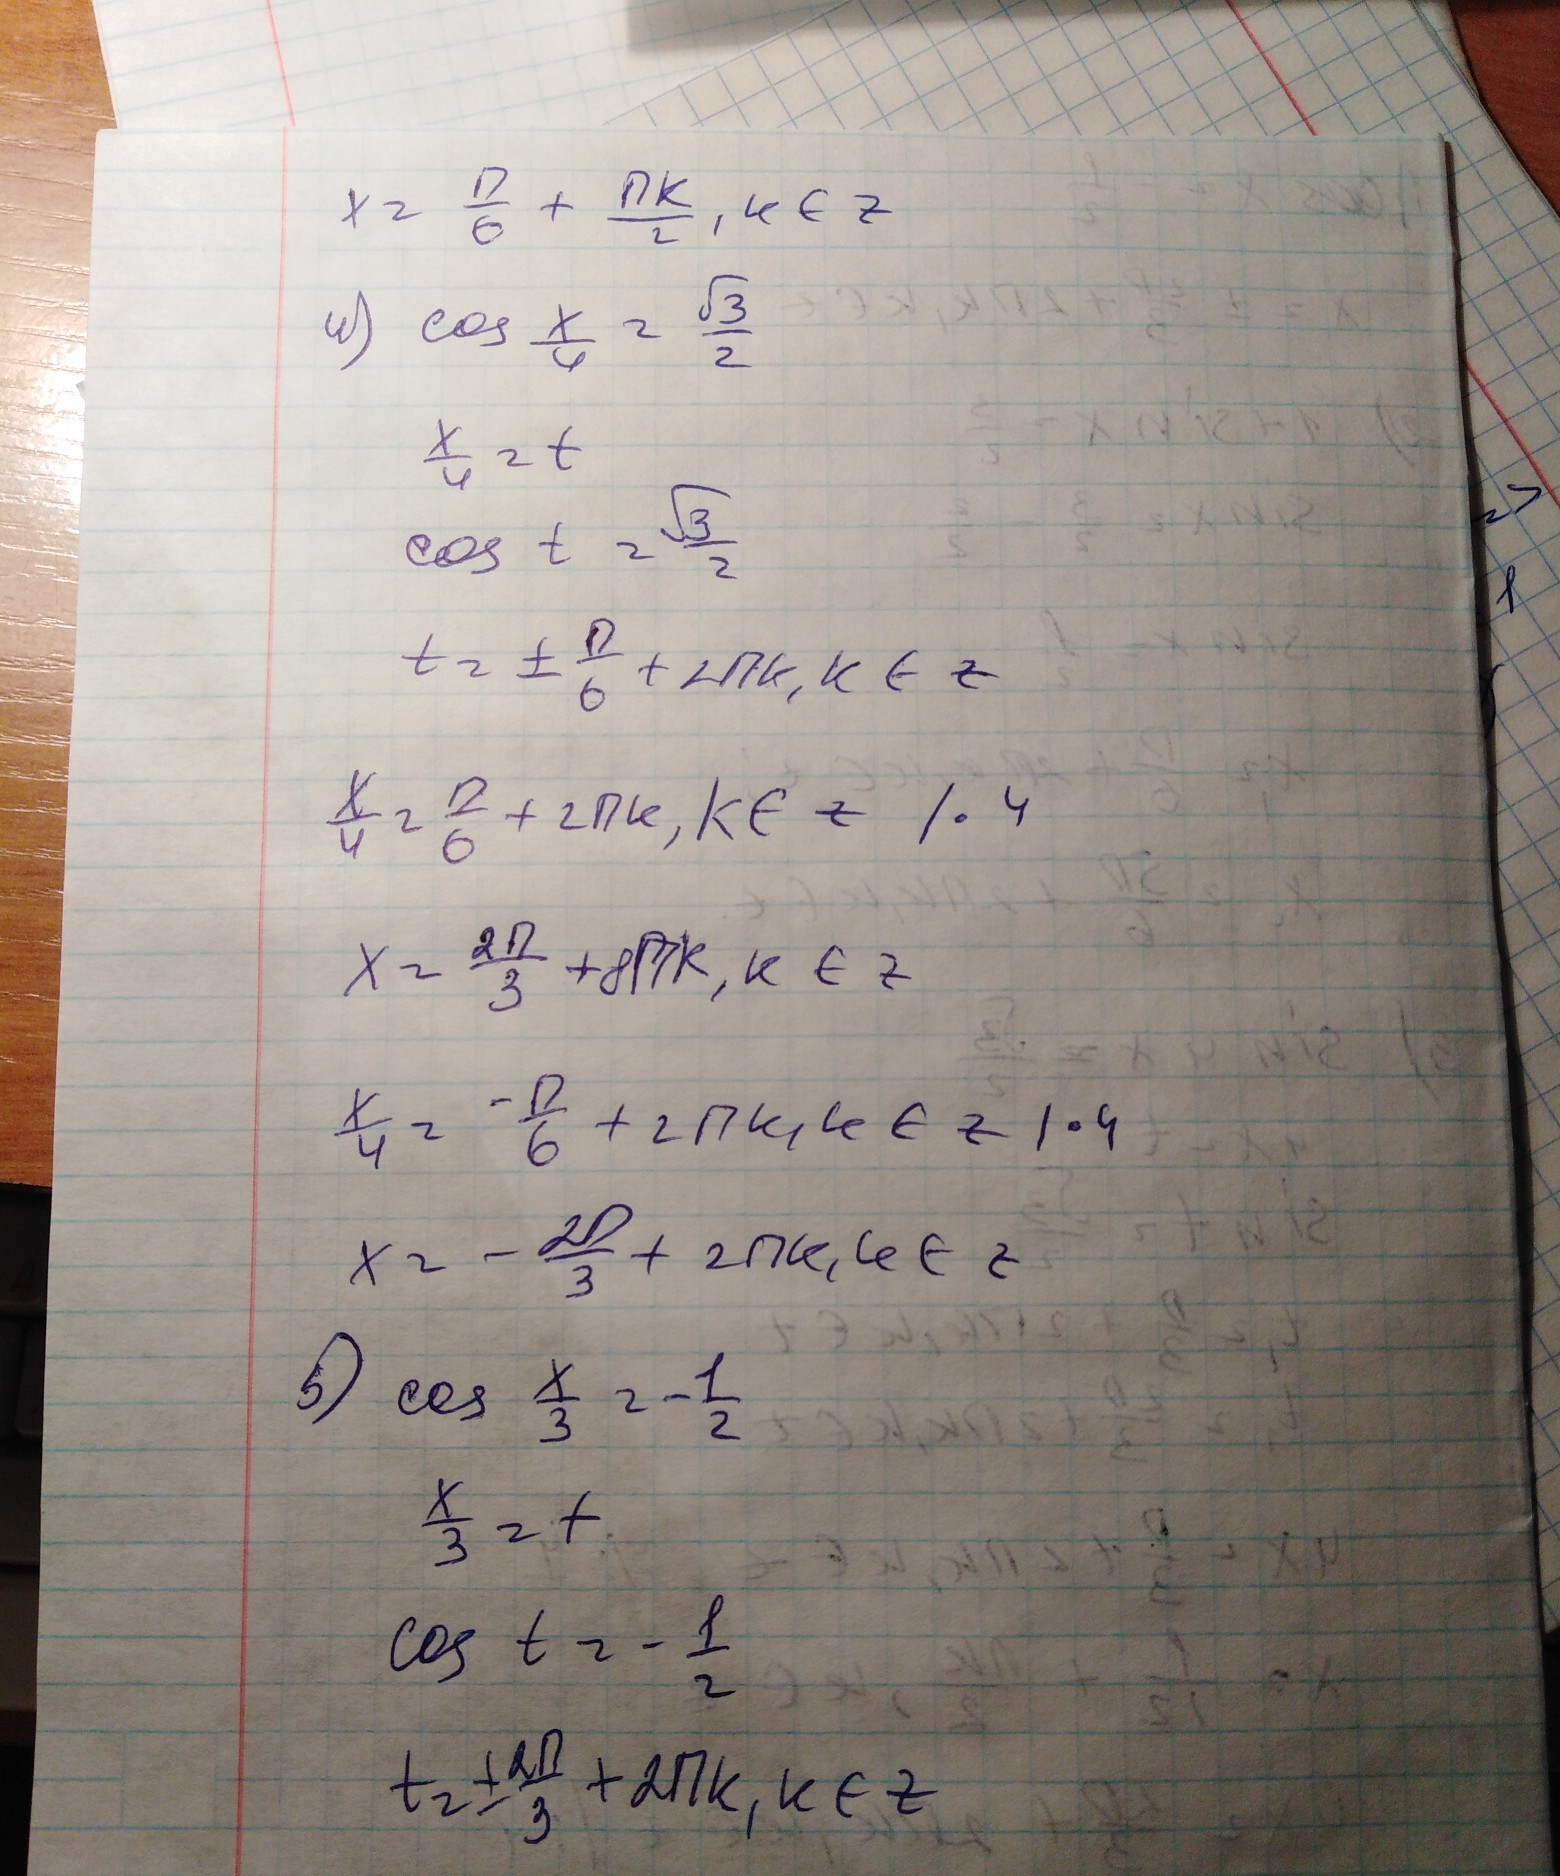 x = П/6 + Пk/2, k ∈ z
4) cos x/4 = √3/2
x/4 = t
cos t = √3/2
t = ± П/6 + 2Пk, k ∈ z
x/4 = П/6 + 2Пk, k ∈ z /· 4
x = 2П/3 + 8Пk, k ∈ z
x/4 = -П/6 + 2Пk, k ∈ z /· 4
x = - 2П/3 + 2Пk, k ∈ z
5) cos x/3 = - 1/2
x/3 = t
cos t = - 1/2
t = ± 2П/3 + 2Пk, k ∈ z